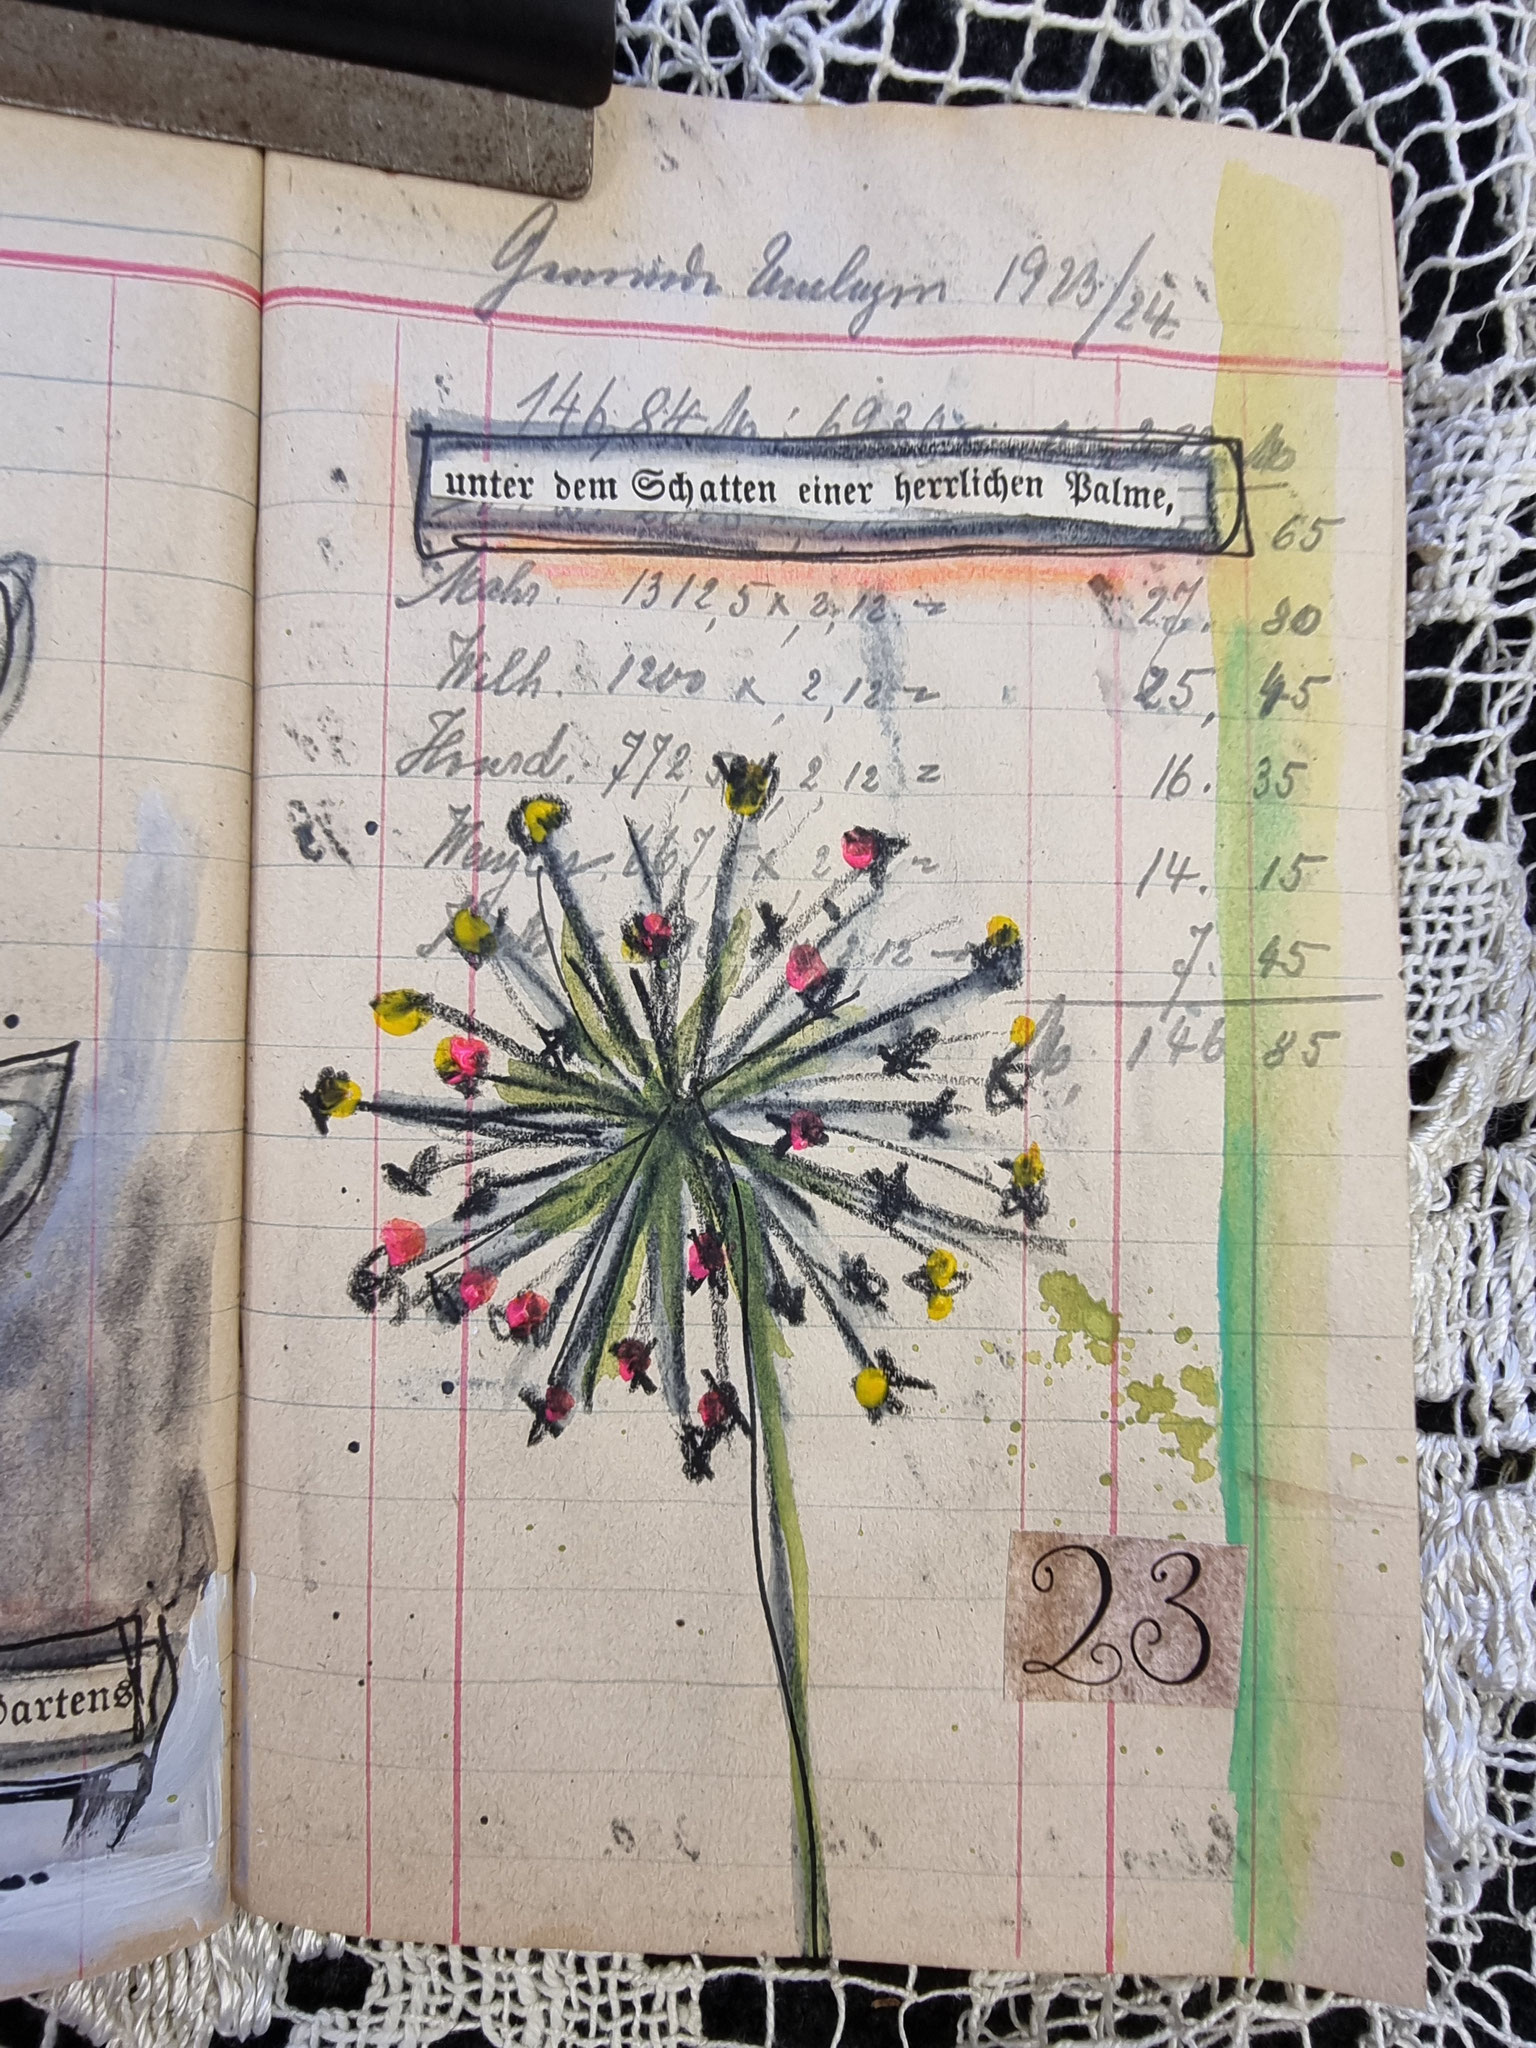 Gemeinde Umlagen 1923/24
146,84 M
unter dem Schatten einer herrlichen Palme,
65
Mahr. 1312,5 x 2,12 = 27. 80
Wilh. 1200 x 2,12 = 25, 45
772, 2,12 = 16. 35
667, x 2 = 14. 15
2 12 7. 45
M 146 85
23
artens